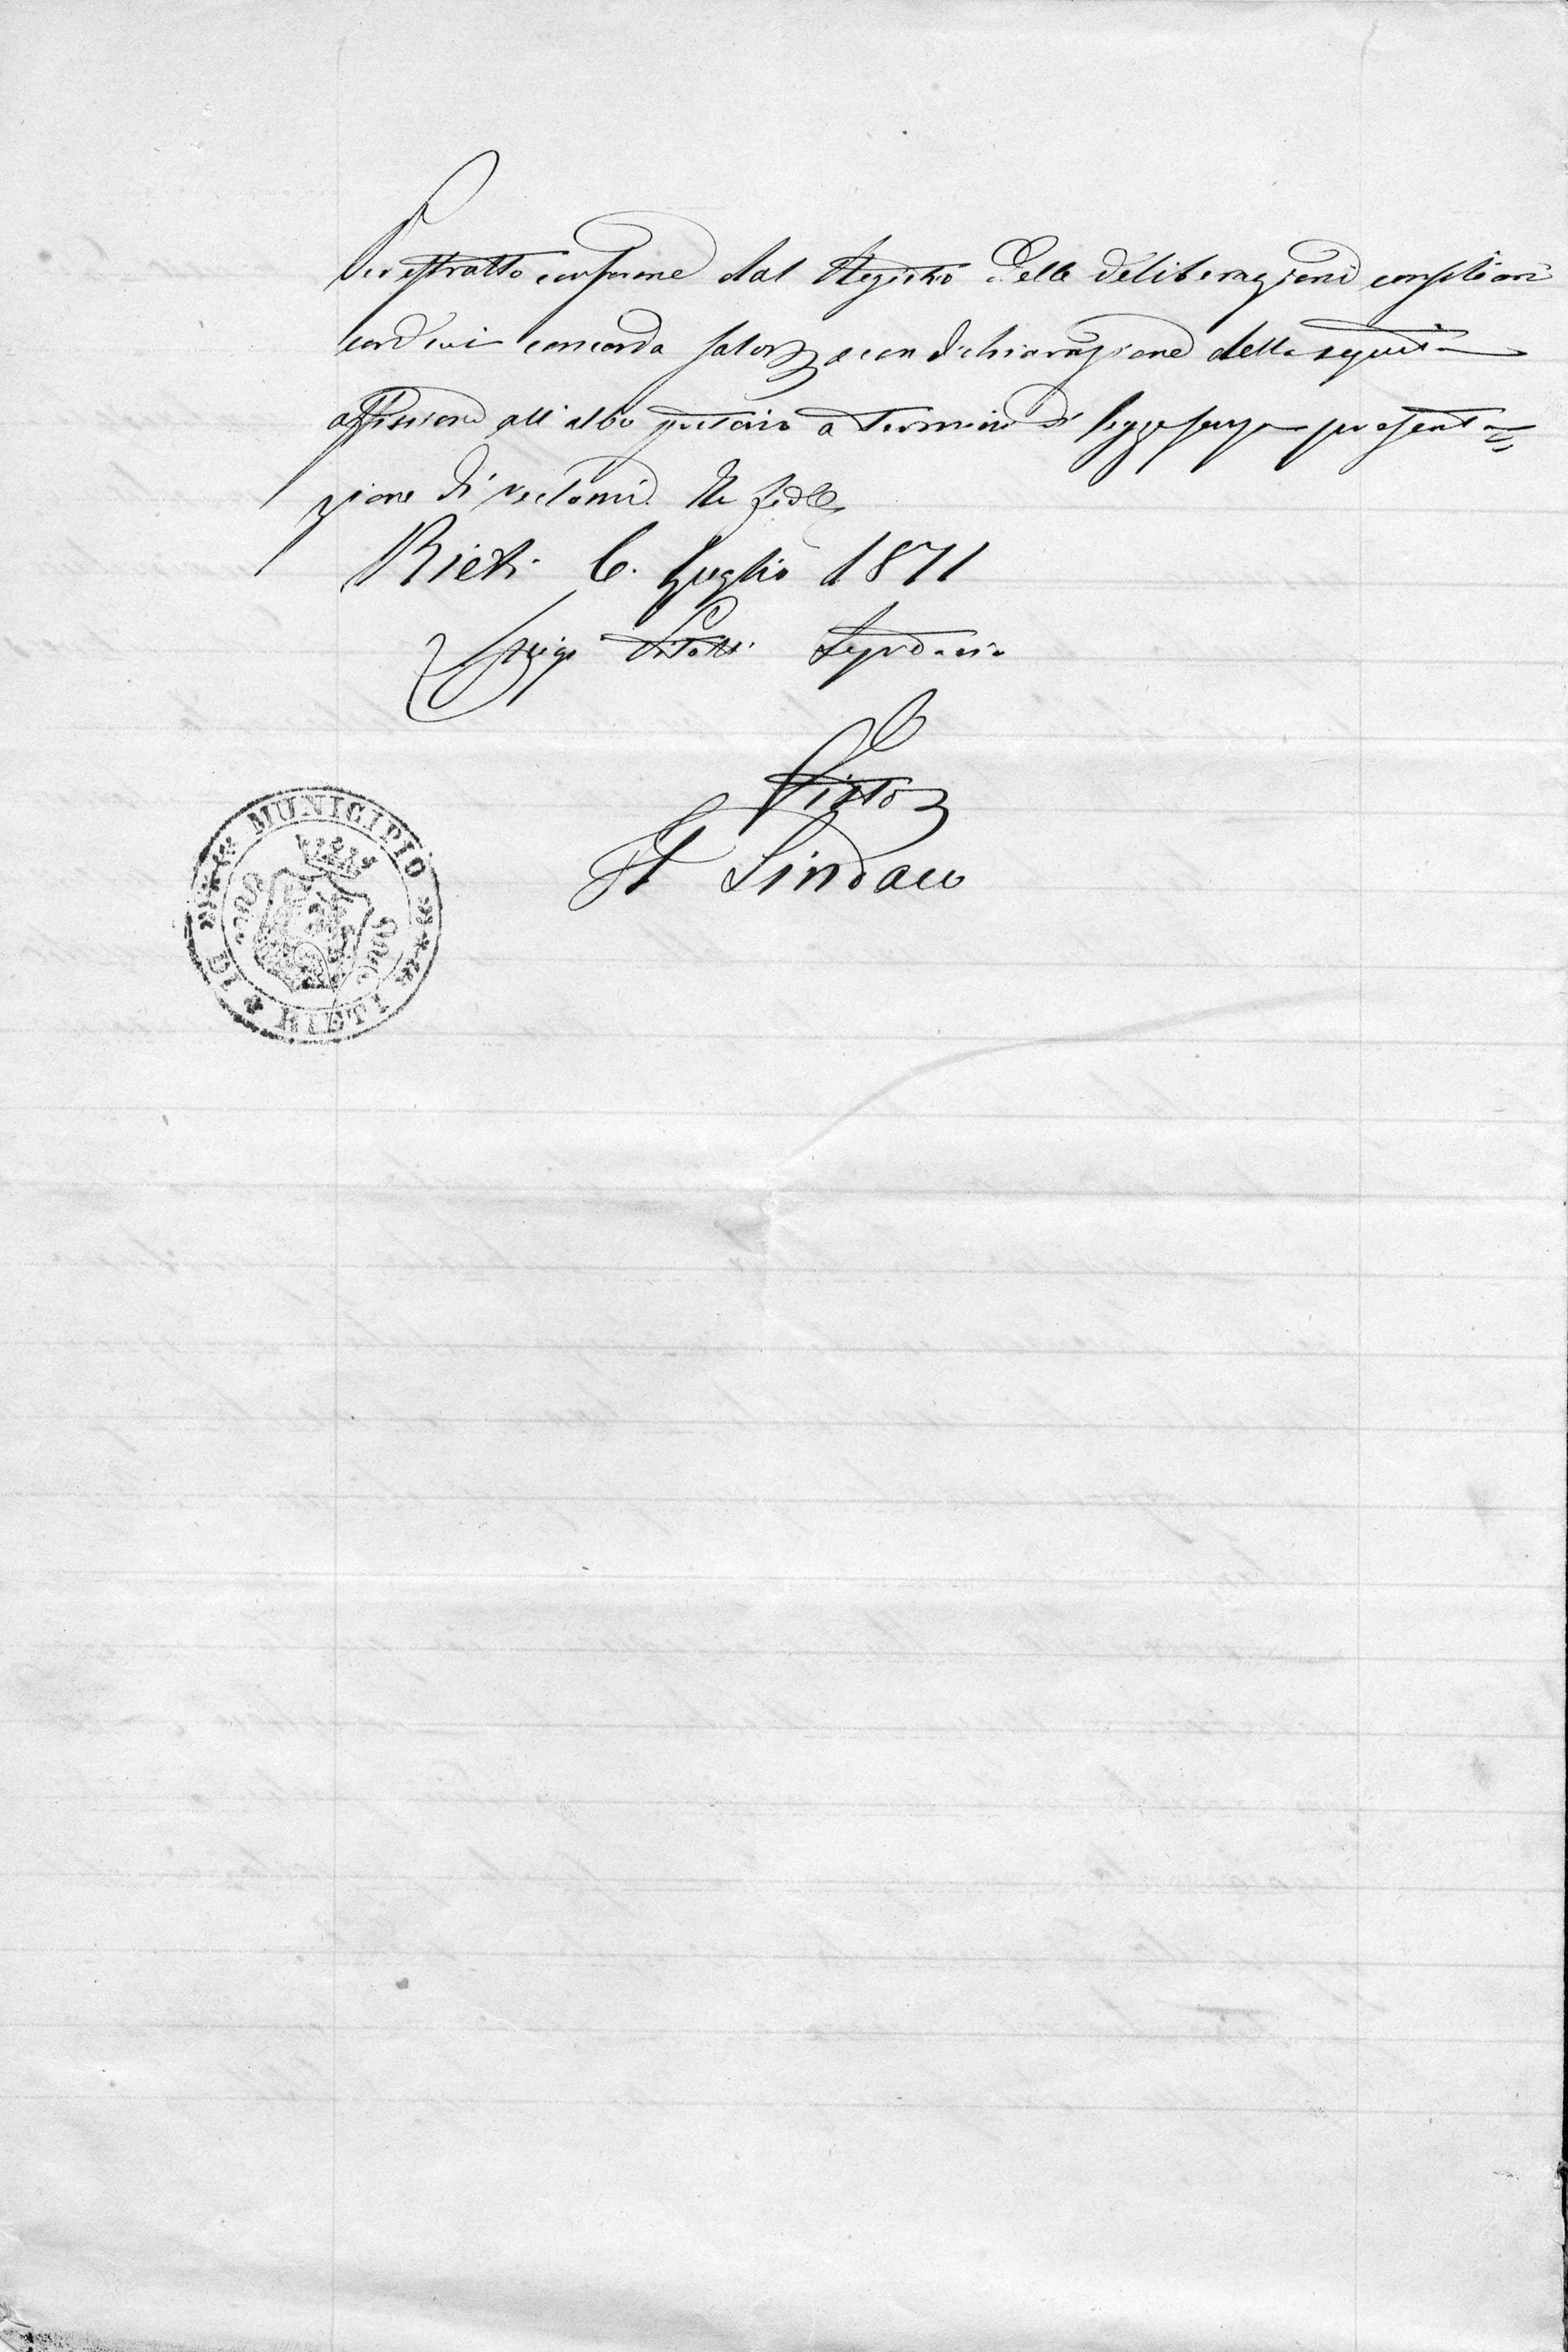 Per estratto conforme dal Registro delle deliberazioni consiliari
con cui concorda salvo &c e con dichiarazione della seguita
affissione all'albo pretorio a termini di legge senza presenta=
zione di reclami. In fede
Rieti 6. Luglio 1871
Luigi Segretario
Visto
Il Sindaco
MUNICIPIO DI RIETI